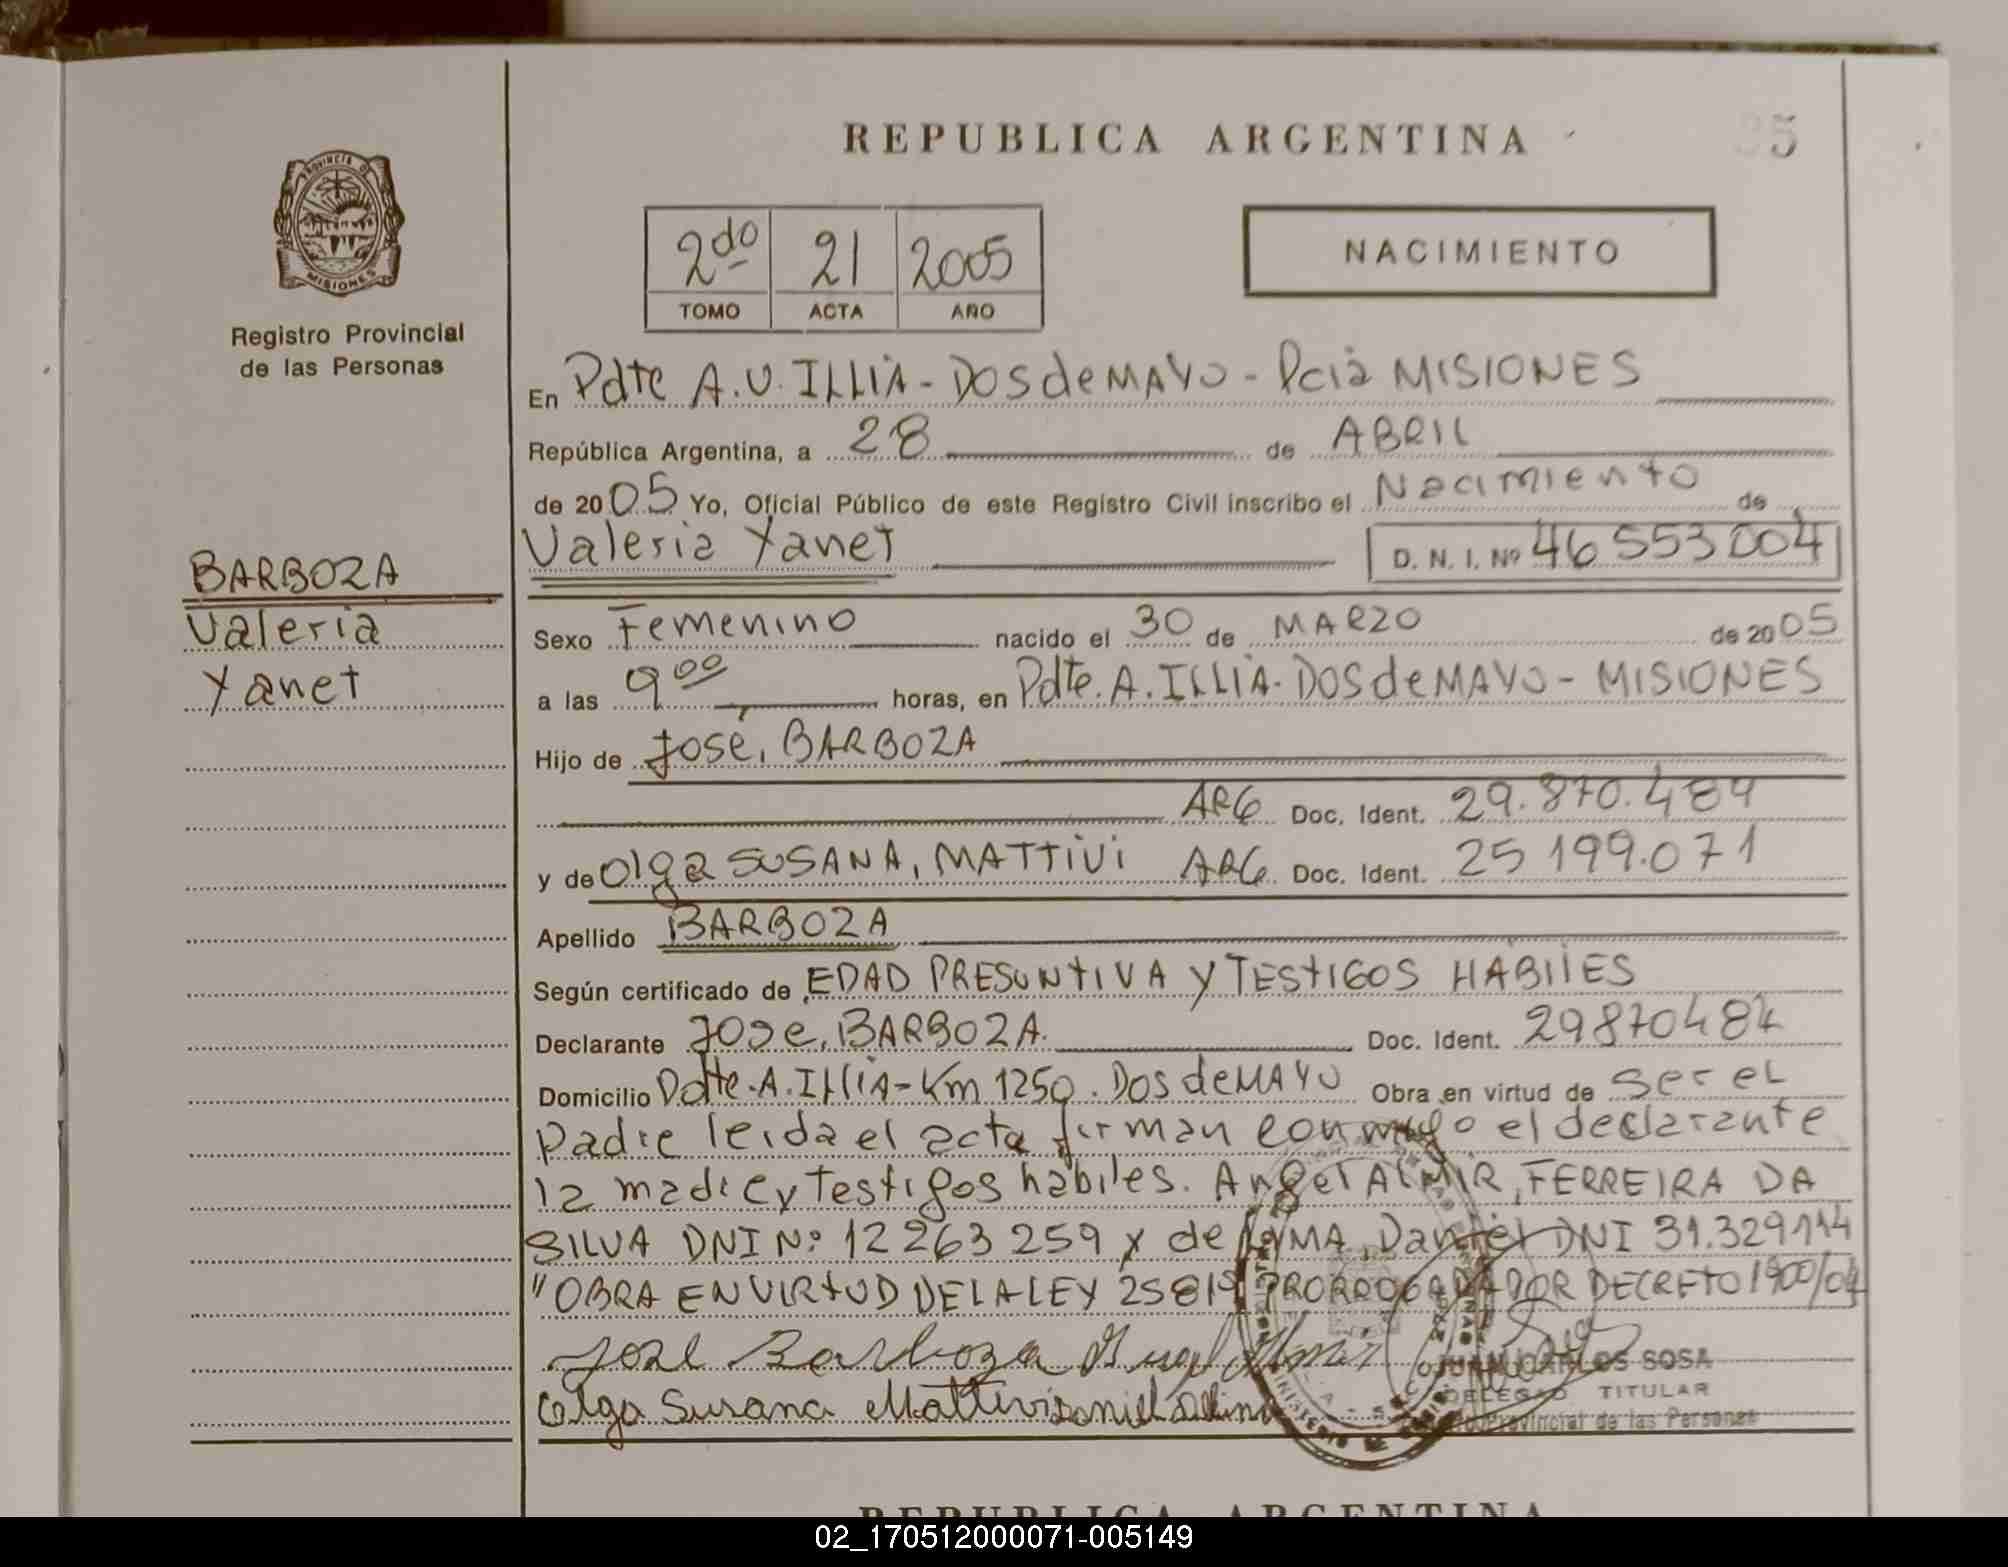 REPUBLICA ARGENTINA
5
PROVINCIA DE
MISIONES
Registro Provincial
de las Personas
2do 21 2005
TOMO ACTA AÑO
NACIMIENTO
En Pdte A.U. ILLIA - DOS de MAYO - Pcia MISIONES
República Argentina, a 28 de ABRIL
de 2005 Yo, Oficial Público de este Registro Civil inscribo el Nacimiento de
Valeria Yanet D. N. I. Nº 46 553 004
BARBOZA
Valeria
Yanet
Sexo Femenino nacido el 30 de MARZO de 2005
a las 9 00 horas, en Pdte. A. ILLIA - DOS de MAYO - MISIONES
Hijo de José, BARBOZA
ARG Doc. Ident. 29.870.484
y de Olga SUSANA, MATTIVI ARG Doc. Ident. 25 199.071
Apellido BARBOZA
Según certificado de EDAD PRESUNTIVA Y TESTIGOS HABILES
Declarante José, BARBOZA. Doc. Ident. 29870484
Domicilio Pdte. A. Illia - Km 1250. DOS de MAYO Obra en virtud de ser el
padre leida el acta firman conmigo el declarante
la madre y Testigos habiles. Angel ALMIR, FERREIRA DA
SILVA DNI Nº 12 263 259 y de LIMA, Daniel DNI 31.329114
"OBRA EN VIRTUD DE LA LEY 25819 PRORROGADA POR DECRETO 1900/04
José Barboza
JUAN CARLOS SOSA
DELEGADO TITULAR
Olga Susana Mattivi
Provincial de las Personas
REPUBLICA ARGENTINA
02_170512000071-005149